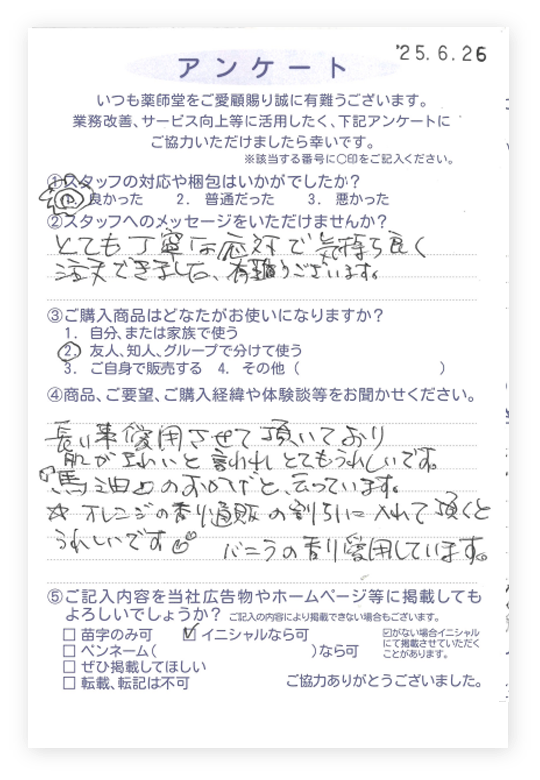 '25.6.26
アンケート
いつも薬師堂をご愛顧賜り誠に有難うございます。
業務改善、サービス向上等に活用したく、下記アンケートに
ご協力いただけましたら幸いです。
※該当する番号に〇印をご記入ください。
①スタッフの対応や梱包はいかがでしたか？
1. 良かった 2. 普通だった 3. 悪かった
②スタッフへのメッセージをいただけませんか？
とても丁寧な応対で気持ち良く
注文できました、有難うございます。
③ご購入商品はどなたがお使いになりますか？
1. 自分、または家族で使う
2. 友人、知人、グループで分けて使う
3. ご自身で販売する 4. その他（ ）
④商品、ご要望、ご購入経緯や体験談等をお聞かせください。
長い事愛用させて頂いており
肌がきれいと言われとてもうれしいです。
「馬油」のおかげと、云っています。
☆オレンジの香り通販の割引に入れて頂くと
うれしいです バニラの香り愛用しています。
⑤ご記入内容を当社広告物やホームページ等に掲載しても
よろしいでしょうか？ ご記入の内容により掲載できない場合もございます。
□ 苗字のみ可 ☑ イニシャルなら可
□ ペンネーム（ ）なら可
□ ぜひ掲載してほしい
□ 転載、転記は不可
☑がない場合イニシャル
にて掲載させていただく
ことがあります。
ご協力ありがとうございました。